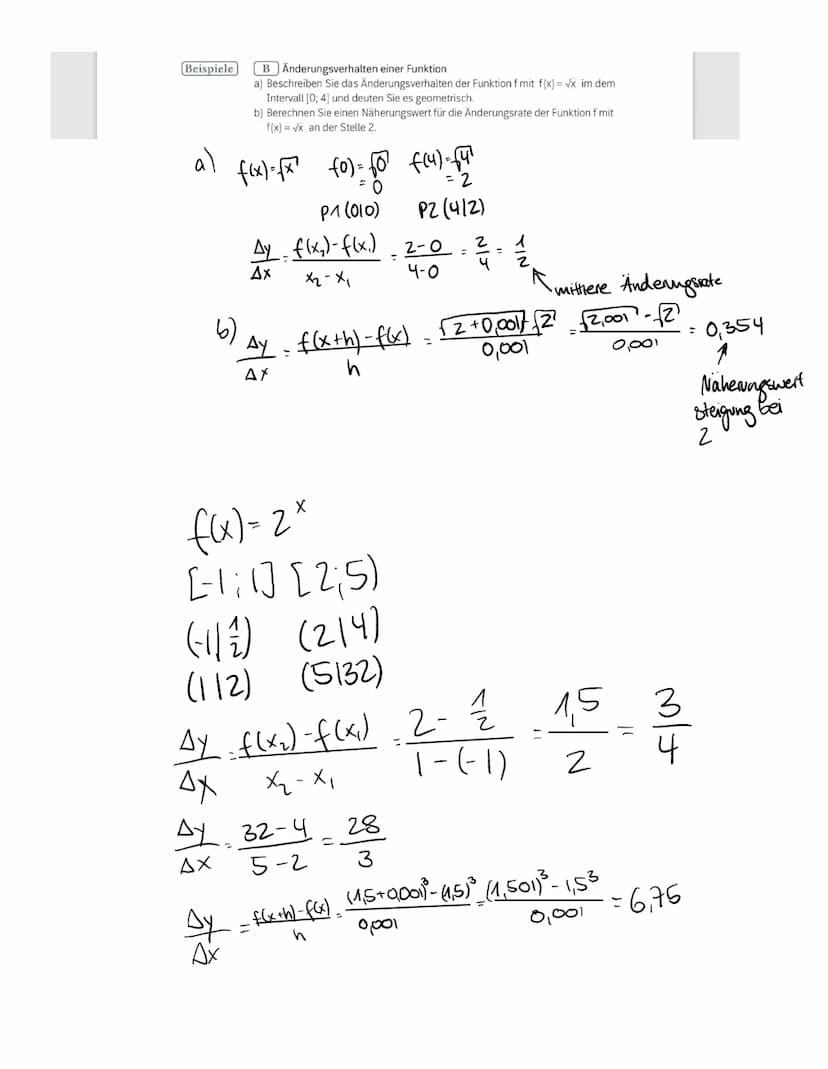 Beispiele B Änderungsverhalten einer Funktion
a) Beschreiben Sie das Änderungsverhalten der Funktion f mit f(x) = √x im dem
Intervall [0; 4] und deuten Sie es geometrisch.
b) Berechnen Sie einen Näherungswert für die Änderungsrate der Funktion f mit
f(x) = √x an der Stelle 2.
a) f(x)=√x f0)=√0 f(4)=√4
= 0 = 2
P1(0|0) P2(4|2)
Δy/Δx = (f(x₂)-f(x₁))/(x₂-x₁) = (2-0)/(4-0) = 2/4 = 1/2
mittlere Änderungsrate
b) Δy/Δx = (f(x+h)-f(x))/h = (√(2+0,001)-√2)/0,001 = (√2,001-√2)/0,001 = 0,354
Näherungswert
steigung bei
2
f(x)=2ˣ
[-1;1] [2;5)
(-1|1/2) (2|4)
(1|2) (5|32)
Δy/Δx = (f(x₂)-f(x₁))/(x₂-x₁) = (2-1/2)/(1-(-1)) = 1,5/2 = 3/4
Δy/Δx = (32-4)/(5-2) = 28/3
Δy/Δx = (f(x+h)-f(x))/h = ((1,5+0,001)³-(1,5)³)/0,001 = ((1,501)³-1,5³)/0,001 = 6,75